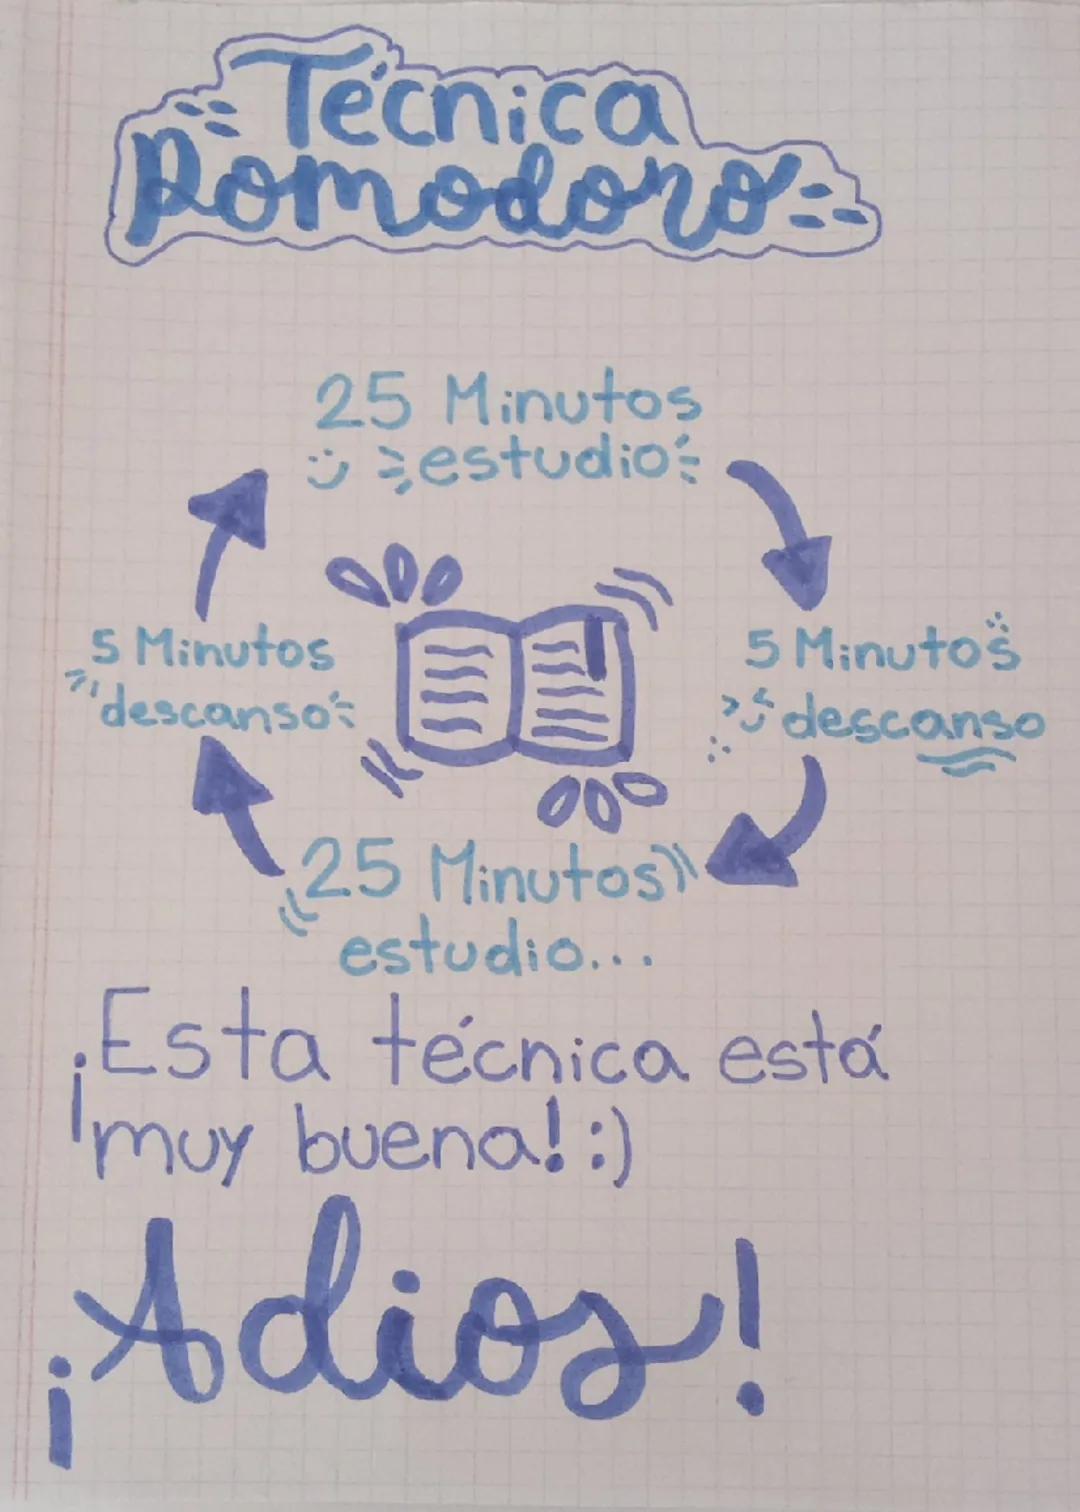 Técnica
Pomodoro
25 Minutos
estudio
5 Minutos
descanso
25 Minutos
estudio...
5 Minutos
descanso
¡Esta técnica está
muy buena! :)
¡Adios!